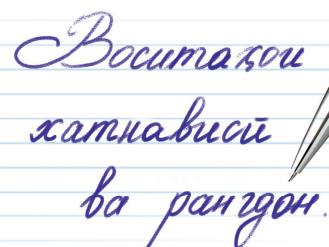 Воситаҳои
хатнависӣ
ва рангдон.